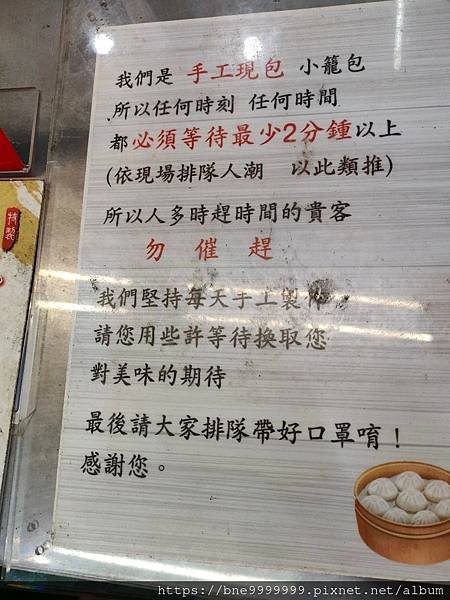 我們是 手工現包 小籠包
所以任何時刻 任何時間
都必須等待最少2分鍾以上
(依現場排隊人潮 以此類推)
所以人多時趕時間的貴客
勿 催 趕
我們堅持每天手工製作
請您用些許等待換取您
對美味的期待
最後請大家排隊帶好口罩唷！
感謝您。
特製
https://bne9999999.pixnet.net/album